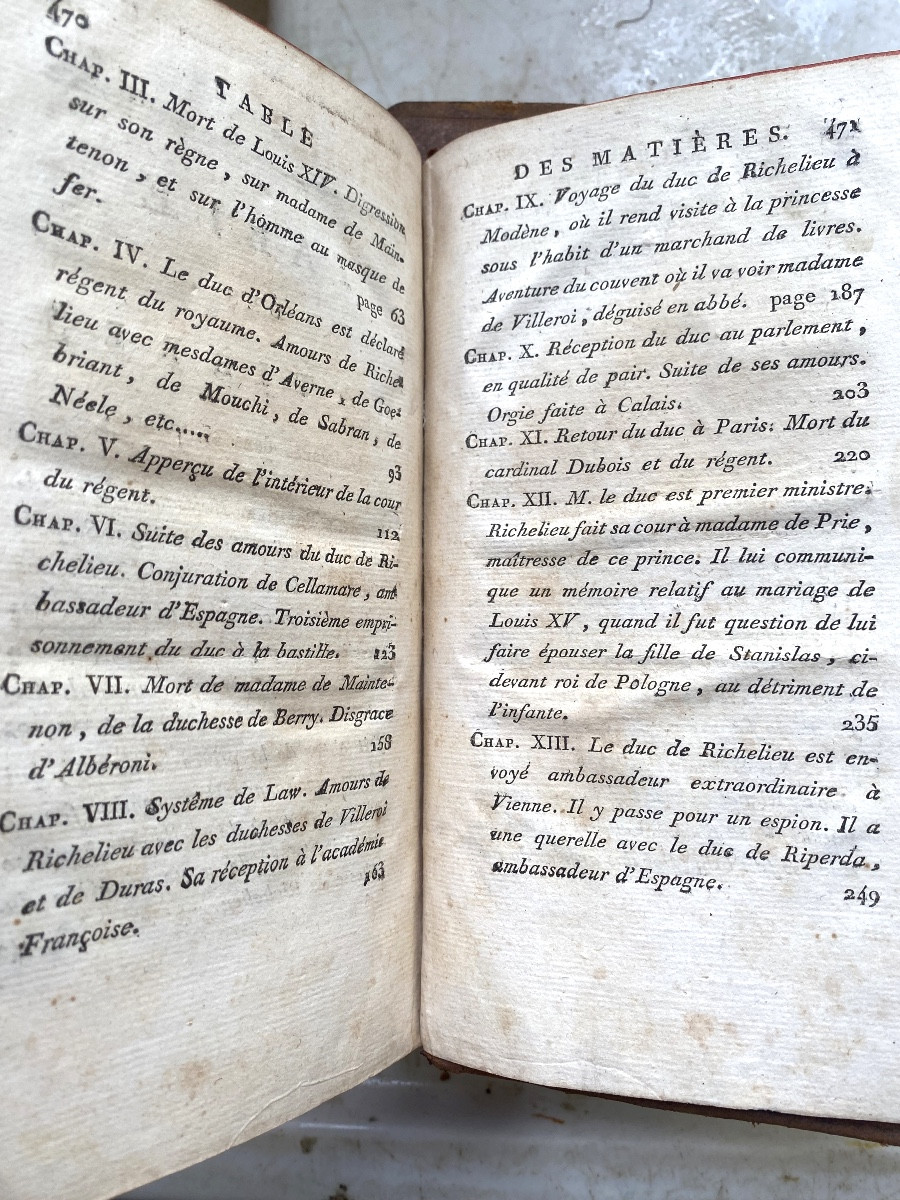 470
TABLE
CHAP. III. Mort de Louis XIV. Digression
sur son règne, sur madame de Main-
tenon, et sur l'homme au masque de
fer. page 63
CHAP. IV. Le duc d'Orléans est déclaré
régent du royaume. Amours de Riche-
lieu avec mesdames d'Averne, de Goe-
briant, de Mouchi, de Sabran, de
Néele, etc..... 93
CHAP. V. Apperçu de l'intérieur de la cour
du régent. 112
CHAP. VI. Suite des amours du duc de Ri-
chelieu. Conjuration de Cellamare, am-
bassadeur d'Espagne. Troisième empri-
sonnement du duc à la bastille. 125
CHAP. VII. Mort de madame de Mainte-
non, de la duchesse de Berry. Disgrace
d'Albéroni. 158
CHAP. VIII. Systême de Law. Amours de
Richelieu avec les duchesses de Villeroi
et de Duras. Sa réception à l'académie
Françoise. 163
DES MATIÈRES. 471
CHAP. IX. Voyage du duc de Richelieu à
Modène, où il rend visite à la princesse
sous l'habit d'un marchand de livres.
Aventure du couvent où il va voir madame
de Villeroi, déguisé en abbé. page 187
CHAP. X. Réception du duc au parlement,
en qualité de pair. Suite de ses amours.
Orgie faite à Calais. 203
CHAP. XI. Retour du duc à Paris. Mort du
cardinal Dubois et du régent. 220
CHAP. XII. M. le duc est premier ministre.
Richelieu fait sa cour à madame de Prie,
maîtresse de ce prince. Il lui communi-
que un mémoire relatif au mariage de
Louis XV, quand il fut question de lui
faire épouser la fille de Stanislas, ci-
devant roi de Pologne, au détriment de
l'infante. 235
CHAP. XIII. Le duc de Richelieu est en-
voyé ambassadeur extraordinaire à
Vienne. Il y passe pour un espion. Il a
une querelle avec le duc de Riperda,
ambassadeur d'Espagne. 249